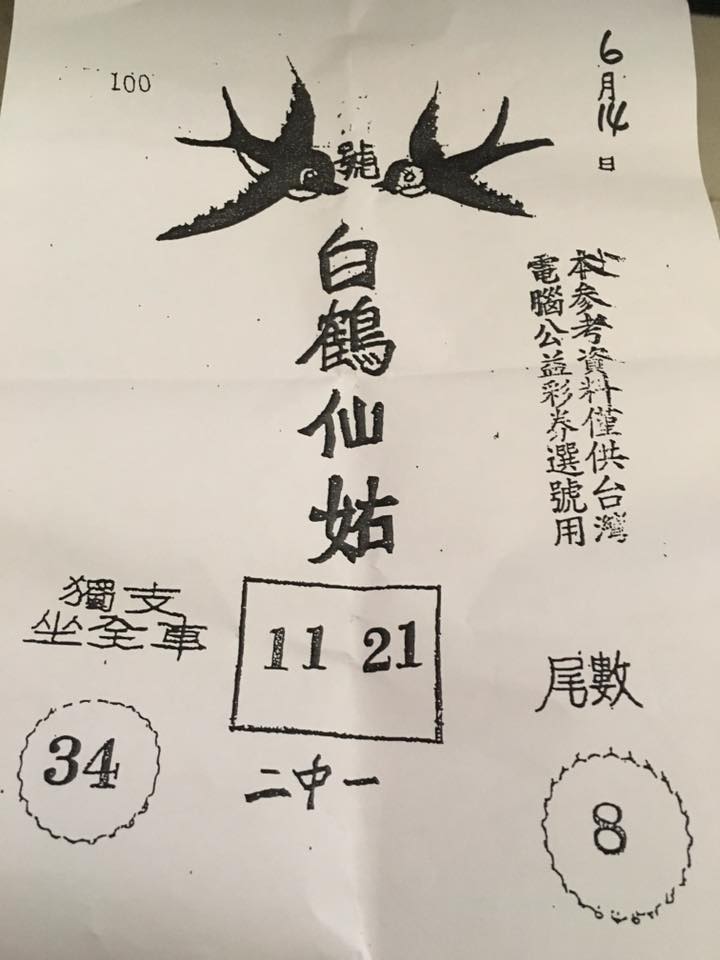 100
號
6月14日
白鶴仙姑
本参考資料僅供台灣
電腦公益彩券選號用
獨支
坐全車
34
11 21
二中一
尾數
8